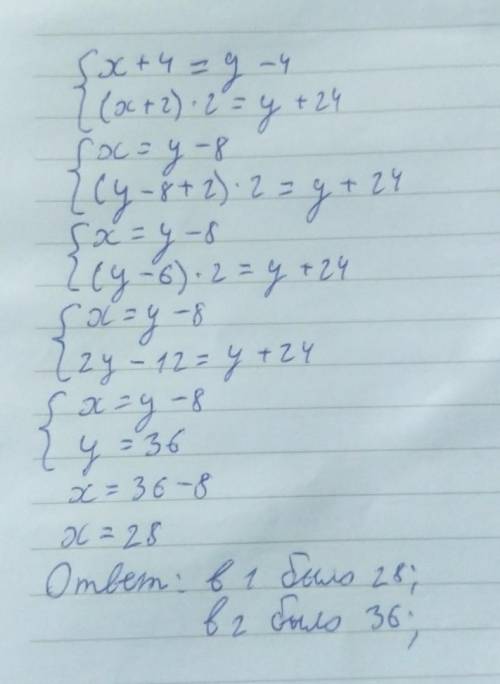 {x + 4 = y - 4
{(x+2) · 2 = y + 24
{x = y - 8
{(y - 8 + 2) · 2 = y + 24
{x = y - 8
{(y - 6) · 2 = y + 24
{x = y - 8
{2y - 12 = y + 24
{x = y - 8
{y = 36
x = 36 - 8
x = 28
Ответ: в 1 было 28;
в 2 было 36;